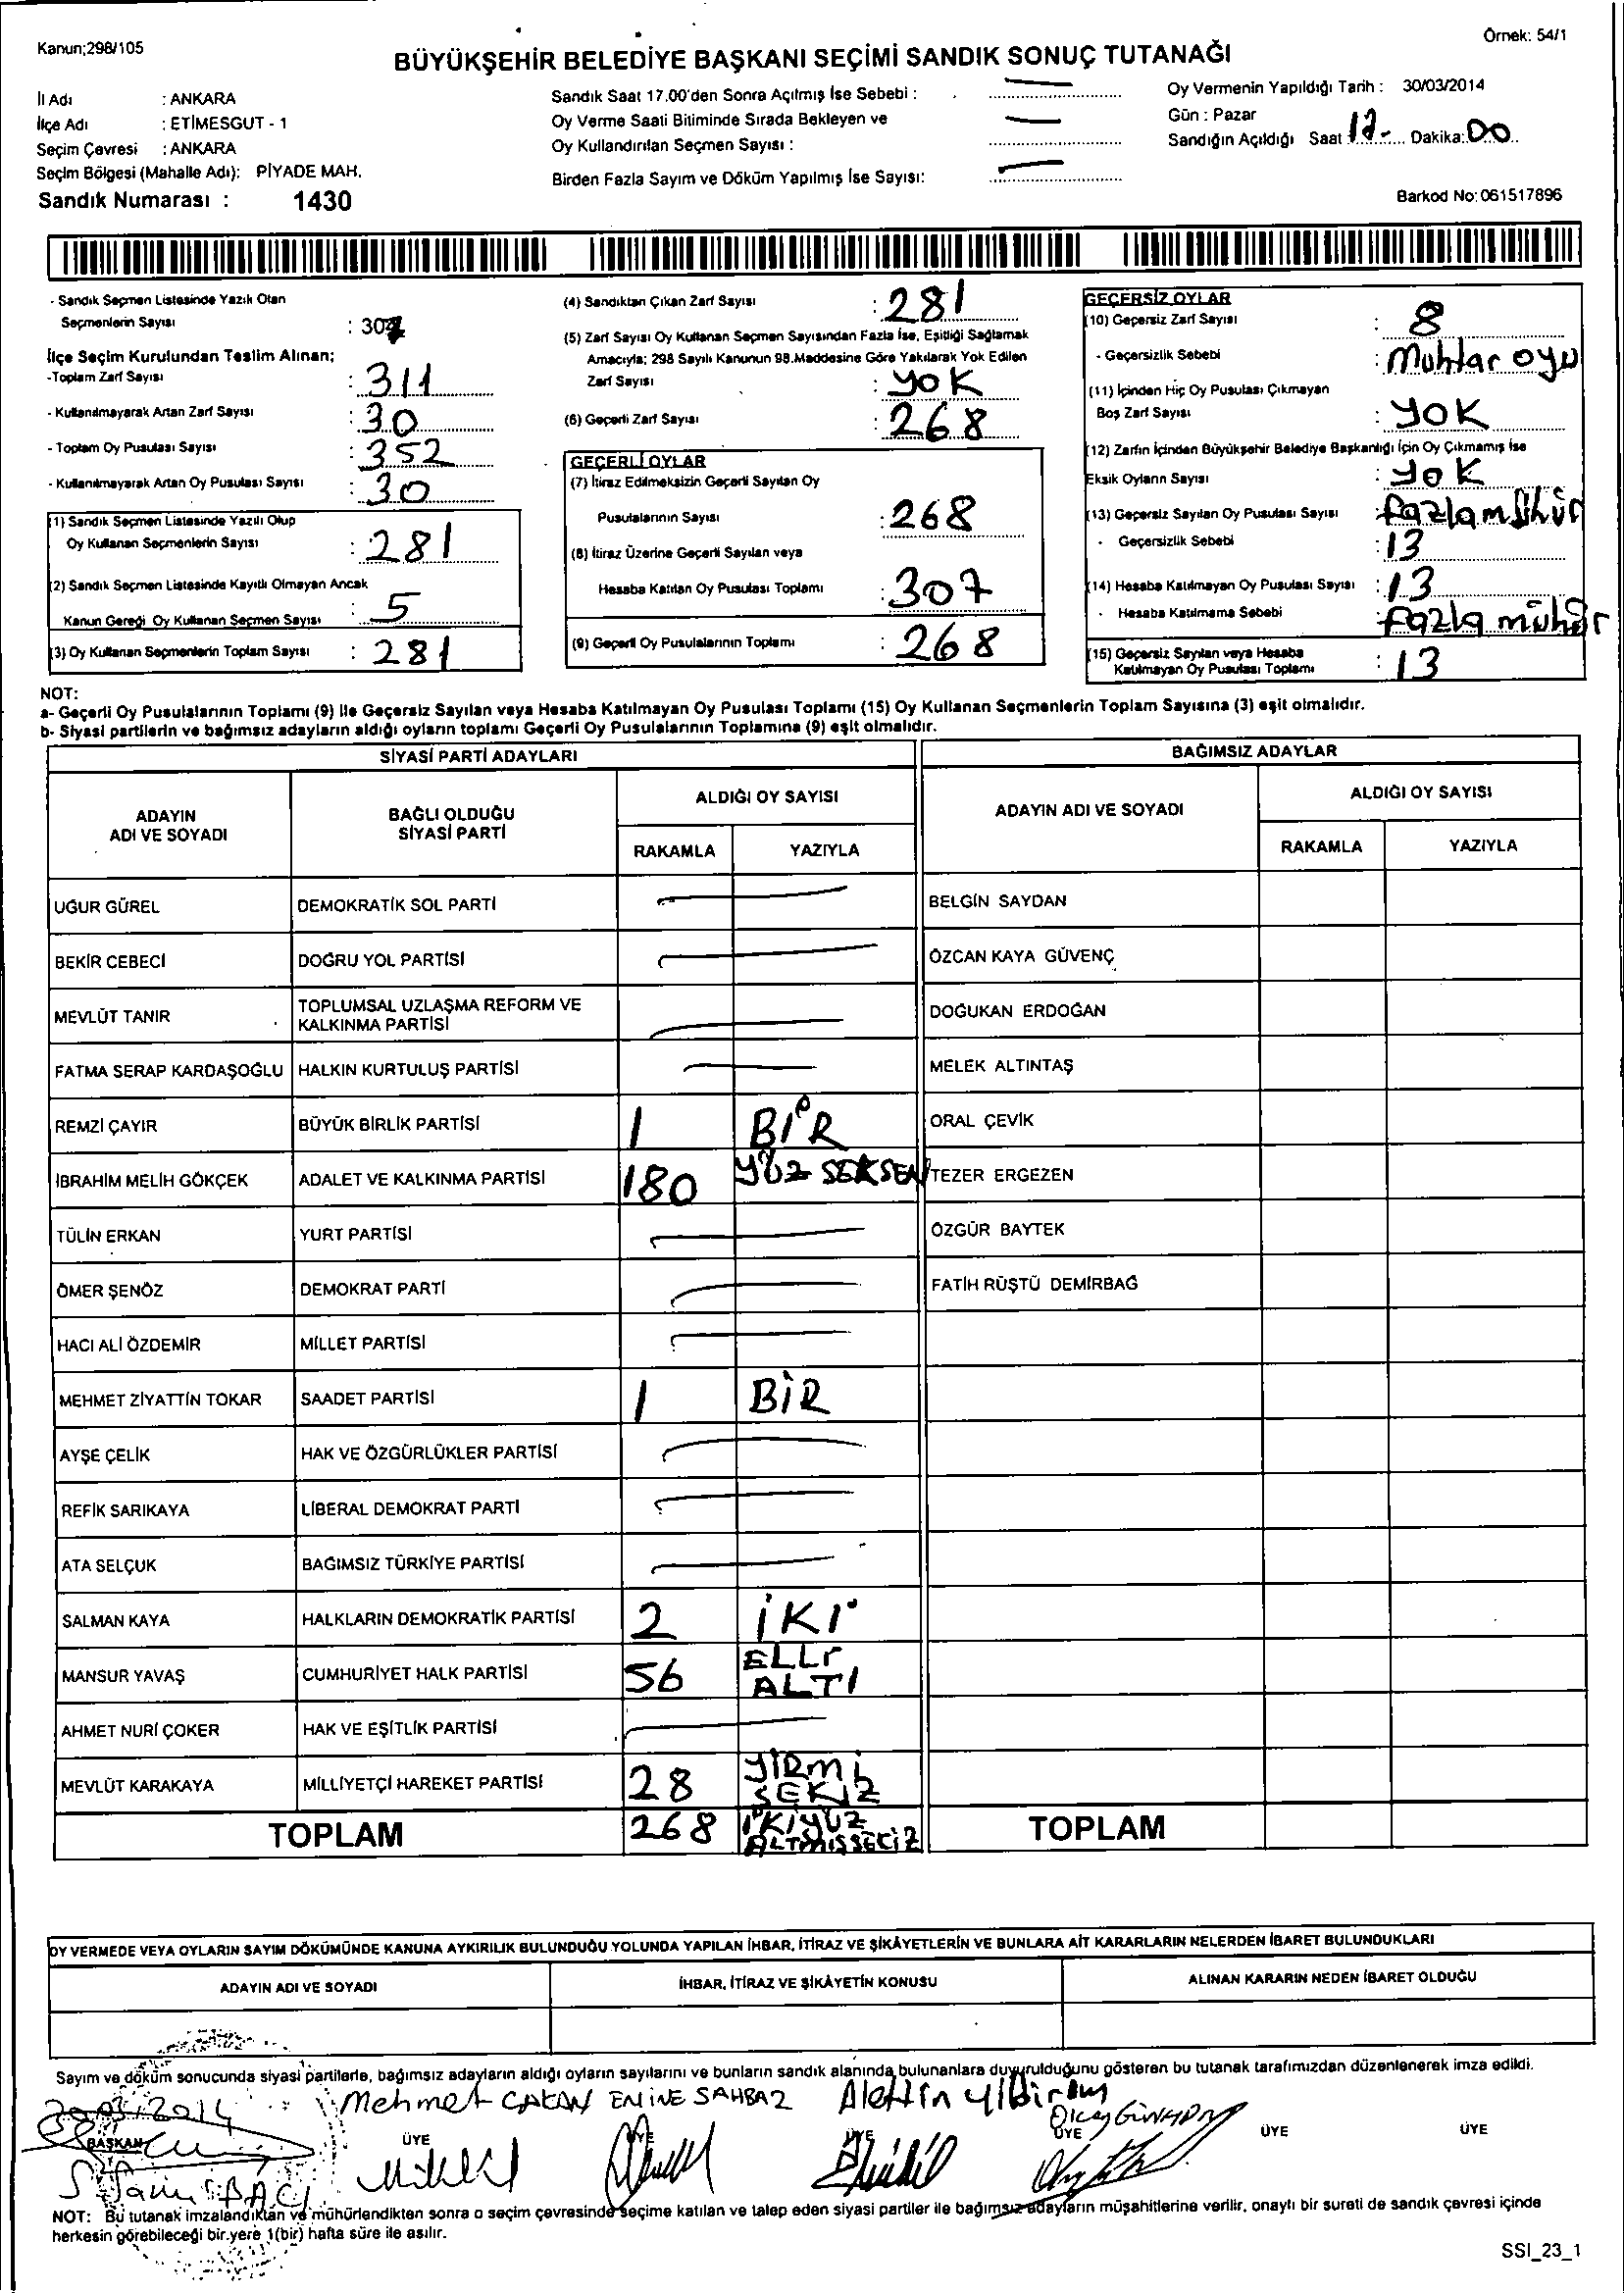 Kanun;298/105
Örnek: 54/1
BÜYÜKŞEHİR BELEDİYE BAŞKANI SEÇİMİ SANDIK SONUÇ TUTANAĞI
İl Adı : ANKARA
İlçe Adı : ETİMESGUT - 1
Seçim Çevresi : ANKARA
Seçim Bölgesi (Mahalle Adı): PİYADE MAH.
Sandık Numarası : 1430
Sandık Saat 17.00'den Sonra Açılmış İse Sebebi :
Oy Verme Saati Bitiminde Sırada Bekleyen ve
Oy Kullandırılan Seçmen Sayısı :
Birden Fazla Sayım ve Döküm Yapılmış İse Sayısı:
Oy Vermenin Yapıldığı Tarih : 30/03/2014
Gün : Pazar
Sandığın Açıldığı Saat 17- Dakika: 00
Barkod No: 061517896
- Sandık Seçmen Listesinde Yazılı Olan
Seçmenlerin Sayısı : 307
İlçe Seçim Kurulundan Teslim Alınan;
-Toplam Zarf Sayısı : 311
- Kullanılmayarak Artan Zarf Sayısı : 30
- Toplam Oy Pusulası Sayısı : 352
- Kullanılmayarak Artan Oy Pusulası Sayısı : 30
(1) Sandık Seçmen Listesinde Yazılı Olup
Oy Kullanan Seçmenlerin Sayısı : 281
(2) Sandık Seçmen Listesinde Kayıtlı Olmayan Ancak
Kanun Gereği Oy Kullanan Seçmen Sayısı : 5
(3) Oy Kullanan Seçmenlerin Toplam Sayısı : 281
(4) Sandıktan Çıkan Zarf Sayısı : 281
(5) Zarf Sayısı Oy Kullanan Seçmen Sayısından Fazla İse, Eşitliği Sağlamak
Amacıyla; 298 Sayılı Kanunun 98.Maddesine Göre Yakılarak Yok Edilen
Zarf Sayısı : YOK
(6) Geçerli Zarf Sayısı : 268
GEÇERLİ OYLAR
(7) İtiraz Edilmeksizin Geçerli Sayılan Oy
Pusulalarının Sayısı : 268
(8) İtiraz Üzerine Geçerli Sayılan veya
Hesaba Katılan Oy Pusulası Toplamı : 307
(9) Geçerli Oy Pusulalarının Toplamı : 268
GEÇERSİZ OYLAR
(10) Geçersiz Zarf Sayısı : 8
- Geçersizlik Sebebi : Muhtar oyu
(11) İçinden Hiç Oy Pusulası Çıkmayan
Boş Zarf Sayısı : YOK
(12) Zarfın İçinden Büyükşehir Belediye Başkanlığı İçin Oy Çıkmamış İse
Eksik Oyların Sayısı : YOK
(13) Geçersiz Sayılan Oy Pusulası Sayısı : fazla mühür
- Geçersizlik Sebebi : 13
(14) Hesaba Katılmayan Oy Pusulası Sayısı : 13
- Hesaba Katılmama Sebebi : fazla mühür
(15) Geçersiz Sayılan veya Hesaba
Katılmayan Oy Pusulası Toplamı : 13
NOT:
a- Geçerli Oy Pusulalarının Toplamı (9) ile Geçersiz Sayılan veya Hesaba Katılmayan Oy Pusulası Toplamı (15) Oy Kullanan Seçmenlerin Toplam Sayısına (3) eşit olmalıdır.
b- Siyasi partilerin ve bağımsız adayların aldığı oyların toplamı Geçerli Oy Pusulalarının Toplamına (9) eşit olmalıdır.
SİYASİ PARTİ ADAYLARI
BAĞIMSIZ ADAYLAR
ADAYIN ADI VE SOYADI
BAĞLI OLDUĞU SİYASİ PARTİ
ALDIĞI OY SAYISI
RAKAMLA YAZIYLA
ADAYIN ADI VE SOYADI
ALDIĞI OY SAYISI
RAKAMLA YAZIYLA
UĞUR GÜREL DEMOKRATİK SOL PARTİ BELGİN SAYDAN
BEKİR CEBECİ DOĞRU YOL PARTİSİ ÖZCAN KAYA GÜVENÇ
MEVLÜT TANIR TOPLUMSAL UZLAŞMA REFORM VE KALKINMA PARTİSİ DOĞUKAN ERDOĞAN
FATMA SERAP KARDAŞOĞLU HALKIN KURTULUŞ PARTİSİ MELEK ALTINTAŞ
REMZİ ÇAYIR BÜYÜK BİRLİK PARTİSİ 1 BİR ORAL ÇEVİK
İBRAHİM MELİH GÖKÇEK ADALET VE KALKINMA PARTİSİ 180 YÜZ SEKSEN TEZER ERGEZEN
TÜLİN ERKAN YURT PARTİSİ ÖZGÜR BAYTEK
ÖMER ŞENÖZ DEMOKRAT PARTİ FATİH RÜŞTÜ DEMİRBAĞ
HACI ALİ ÖZDEMİR MİLLET PARTİSİ
MEHMET ZİYATTİN TOKAR SAADET PARTİSİ 1 BİR
AYŞE ÇELİK HAK VE ÖZGÜRLÜKLER PARTİSİ
REFİK SARIKAYA LİBERAL DEMOKRAT PARTİ
ATA SELÇUK BAĞIMSIZ TÜRKİYE PARTİSİ
SALMAN KAYA HALKLARIN DEMOKRATİK PARTİSİ 2 İKİ
MANSUR YAVAŞ CUMHURİYET HALK PARTİSİ 56 ELLİ ALTI
AHMET NURİ ÇOKER HAK VE EŞİTLİK PARTİSİ
MEVLÜT KARAKAYA MİLLİYETÇİ HAREKET PARTİSİ 28 YİRMİ SEKİZ
TOPLAM 268 İKİYÜZ ALTMISSEKİZ TOPLAM
OY VERMEDE VEYA OYLARIN SAYIM DÖKÜMÜNDE KANUNA AYKIRILIK BULUNDUĞU YOLUNDA YAPILAN İHBAR, İTİRAZ VE ŞİKÂYETLERİN VE BUNLARA AİT KARARLARIN NELERDEN İBARET BULUNDUKLARI
ADAYIN ADI VE SOYADI İHBAR, İTİRAZ VE ŞİKÂYETİN KONUSU ALINAN KARARIN NEDEN İBARET OLDUĞU
Sayım ve döküm sonucunda siyasi partilerle, bağımsız adayların aldığı oyların sayılarını ve bunların sandık alanında bulunanlara duyurulduğunu gösteren bu tutanak tarafımızdan düzenlenerek imza edildi.
30.03.2014 Mehmet CAKAN EMİNE SAHBAZ Alettin Yıldırım
BAŞKAN ÜYE ÜYE ÜYE ÜYE ÜYE ÜYE
NOT: Bu tutanak imzalandıktan ve mühürlendikten sonra o seçim çevresinde seçime katılan ve talep eden siyasi partiler ile bağımsız adayların müşahitlerine verilir, onaylı bir sureti de sandık çevresi içinde
herkesin görebileceği bir.yere 1(bir) hafta süre ile asılır.
SSI_23_1